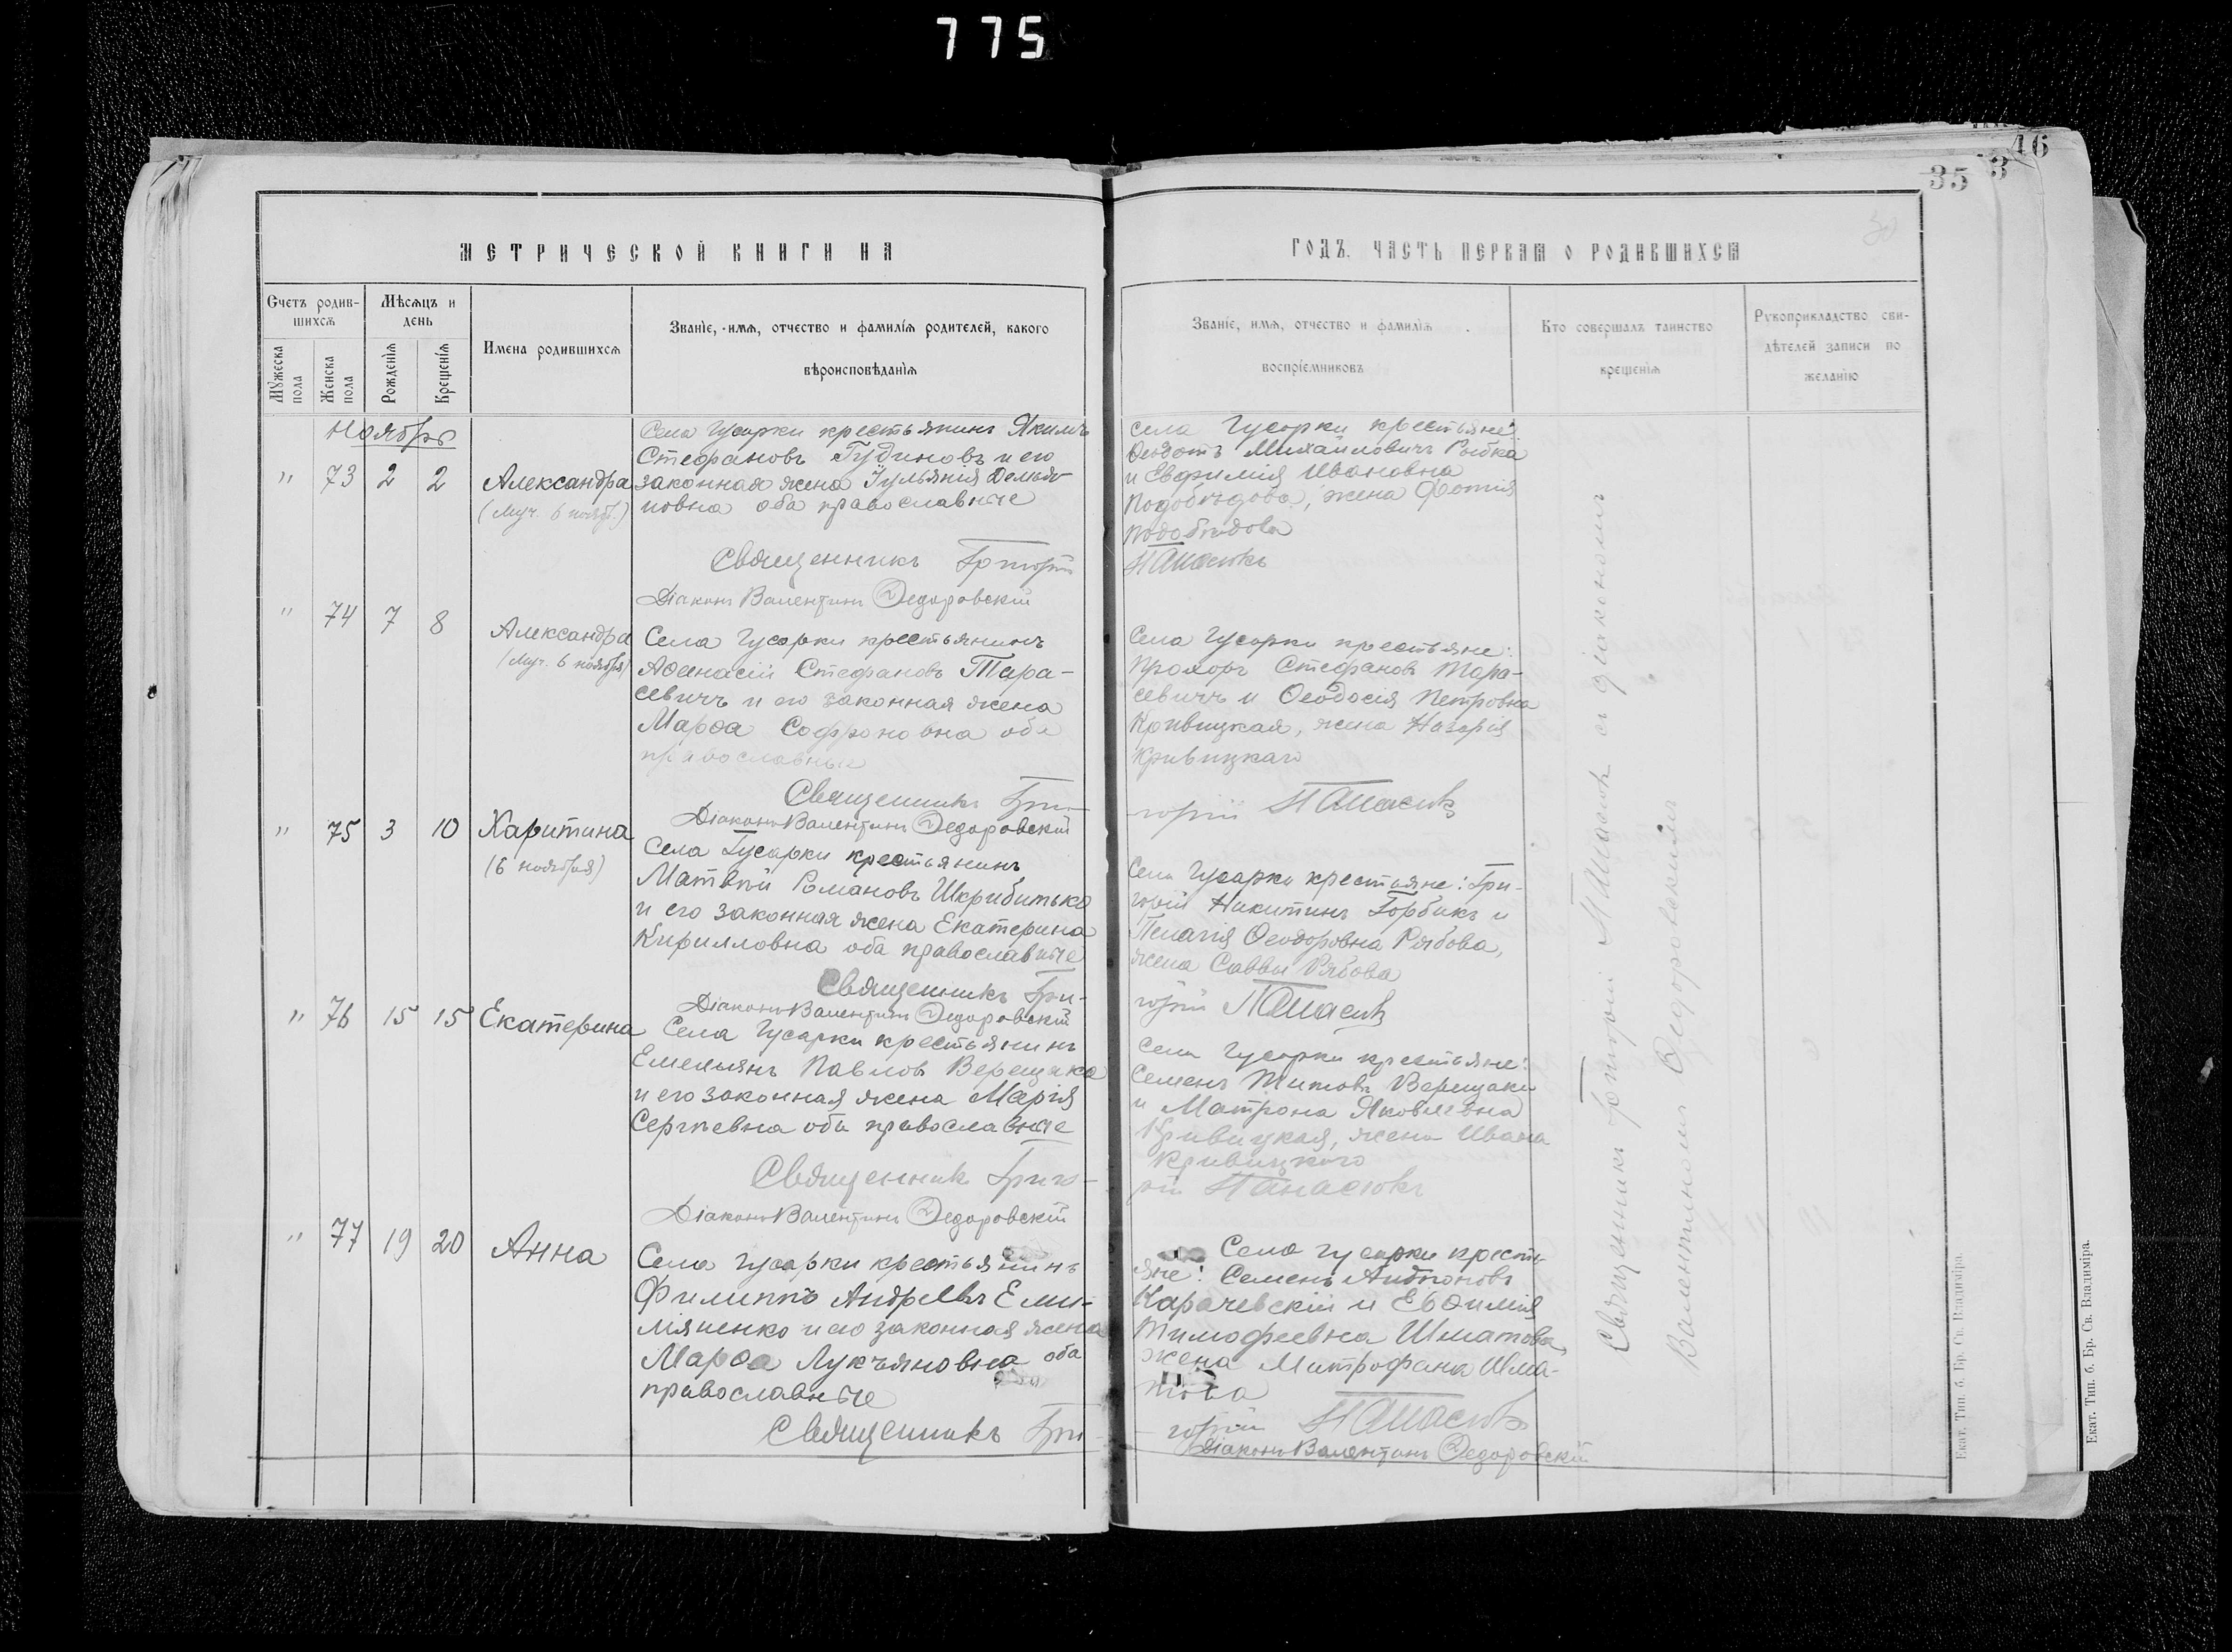 775
46
3
35
30
МЕТРИЧЕСКОЙ КНИГИ НА
ГОДЪ. ЧАСТЬ ПЕРВАЯ О РОДИВШИХСЯ
Счетъ родив-
шихся
Мѣсяцъ и
день
Мужеска
пола
Женска
пола
Рожденія
Крещенія
Имена родившихся
Званіе, имя, отчество и фамилія родителей, какого
вѣроисповѣданія
Званіе, имя, отчество и фамилія
воспріемниковъ
Кто совершалъ таинство
крещенія
Рукоприкладство сви-
дѣтелей записи по
желанію
Ноябрь
" 73 2 2 Александра
(Муч. 6 нояб.)
Села Гусарки крестьянинъ Якимъ
Стефановъ Гудиновъ и его
законная жена Іульянія Демья-
новна оба православные
Священникъ Григорій
Діаконъ Валентинъ Ѳедоровскій
села Гусарки крестьяне:
Ѳеодотъ Михайловичъ Рыбка
и Евфимія Ивановна
Подобѣдова, жена Фотія
Подобѣдова
Панасюкъ
" 74 7 8 Александра
(Муч. 6 ноября)
Села Гусарки крестьянинъ
Аѳанасій Стефановъ Тара-
севичъ и его законная жена
Марѳа Софроновна оба
православные
Священникъ Гри-
Діаконъ Валентинъ Ѳедоровскій
Села Гусарки крестьяне:
Прохоръ Стефановъ Тара-
севичъ и Ѳеодосія Петровна
Кривицкая, жена Назарія
Кривицкаго
горій Панасюкъ
" 75 3 10 Харитина
(6 ноября)
Села Гусарки крестьянинъ
Матвѣй Романовъ Шкрибитько
и его законная жена Екатерина
Кирилловна оба православные
Священникъ Гри-
Діаконъ Валентинъ Ѳедоровскій
Села Гусарки крестьяне: Гри-
горій Никитинъ Горбикъ и
Пелагія Ѳеодоровна Рябова,
жена Саввы Рябова
горій Панасюкъ
" 76 15 15 Екатерина
Села Гусарки крестьянинъ
Емельянъ Павловъ Верещака
и его законная жена Марія
Сергѣевна оба православные
Священникъ Григо-
Діаконъ Валентинъ Ѳедоровскій
Села Гусарки крестьяне:
Семенъ Титовъ Верещака
и Матрона Яковлевна
Кривицкая, жена Ивана
Кривицкого
рій Панасюкъ
" 77 19 20 Анна
Села Гусарки крестьянинъ
Филиппъ Андреевъ Еми-
ляненко и его законная жена
Марѳа Лукъяновна оба
православные
Священникъ Гри-
Села Гусарки кресть-
яне: Семенъ Антоновъ
Карачевскій и Евѳимія
Тимофеевна Шматова
жена Митрофана Шма-
това
горій Панасюкъ
Діаконъ Валентинъ Ѳедоровскій
Священникъ Григорій Панасюкъ съ діакономъ
Валентиномъ Ѳедоровскимъ
Екат. Тип. б. Бр. Св. Владиміра.
Екат. Тип. б. Бр. Св. Владиміра.